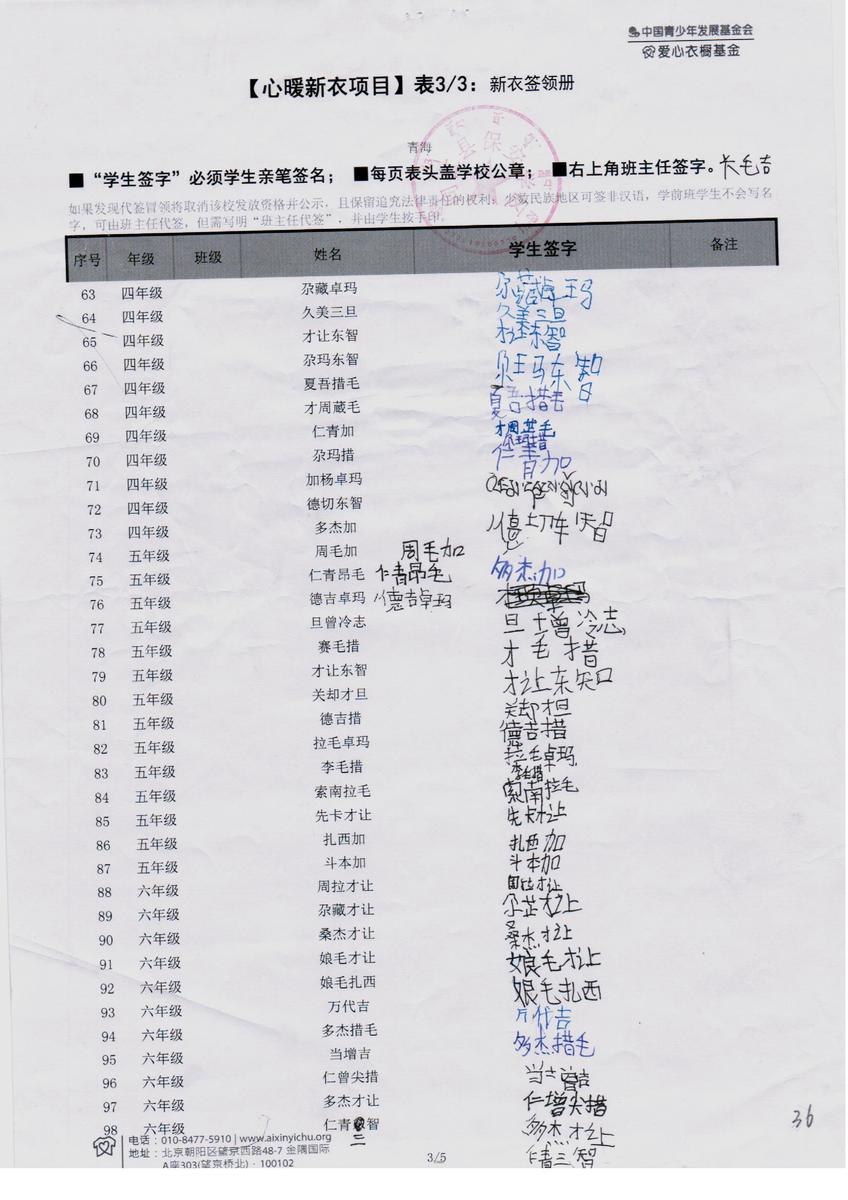 中国青少年发展基金会
爱心衣橱基金
【心暖新衣项目】表3/3：新衣签领册
青海
■“学生签字”必须学生亲笔签名；■每页表头盖学校公章；■右上角班主任签字。
如果发现代签冒领将取消该校发放资格并公示，且保留追究法律责任的权利，少数民族地区可签非汉语，学前班学生不会写名
字，可由班主任代签，但需写明“班主任代签”，并由学生按手印。
序号 年级 班级 姓名 学生签字 备注
63 四年级 尕藏卓玛
64 四年级 久美三旦 久美三旦
65 四年级 才让东智 才让东智
66 四年级 尕玛东智 尕玛东智
67 四年级 夏吾措毛 夏吾措毛
68 四年级 才周蔵毛
69 四年级 仁青加 仁青加
70 四年级 尕玛措 尕玛措
71 四年级 加杨卓玛
72 四年级 德切东智
73 四年级 多杰加 多杰加
74 五年级 周毛加 周毛加
75 五年级 仁青昂毛 仁青昂毛
76 五年级 德吉卓玛 德吉卓玛
77 五年级 旦曾冷志 旦增冷志
78 五年级 赛毛措 才毛措
79 五年级 才让东智 才让东智
80 五年级 关却才旦 关却才旦
81 五年级 德吉措 德吉措
82 五年级 拉毛卓玛 拉毛卓玛
83 五年级 李毛措 李毛措
84 五年级 索南拉毛 索南拉毛
85 五年级 先卡才让 先卡才让
86 五年级 扎西加 扎西加
87 五年级 斗本加 斗本加
88 六年级 周拉才让 周拉才让
89 六年级 尕藏才让
90 六年级 桑杰才让 桑杰才让
91 六年级 娘毛才让 娘毛才让
92 六年级 娘毛扎西 娘毛扎西
93 六年级 万代吉 万代吉
94 六年级 多杰措毛 多杰措毛
95 六年级 当增吉 当增吉
96 六年级 仁曾尖措 仁增尖措
97 六年级 多杰才让 多杰才让
98 六年级 仁青三智 仁青三智
36
电话：010-8477-5910 | www.aixinyichu.org
地址：北京朝阳区望京西路48-7 金隅国际
A座303(望京桥北)·100102
3/5